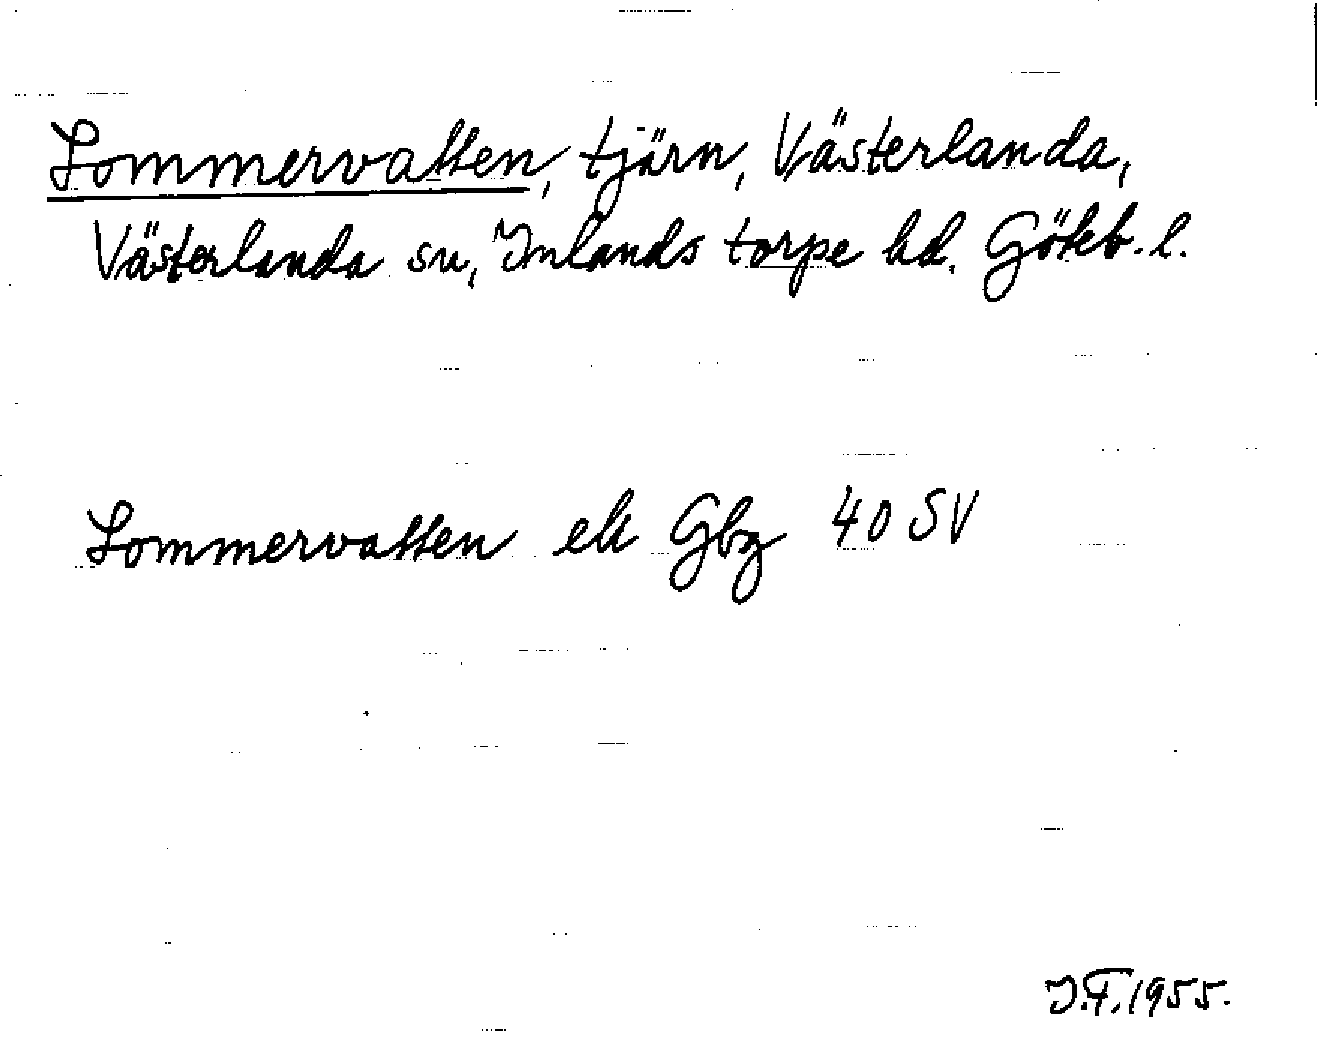 Lommervatten, tjärn, Västerlanda,
Västerlanda sn, Inlands torpe hd. Göteb. l.
Lommervatten ek Gbg 40 SV
J.F. 1955.